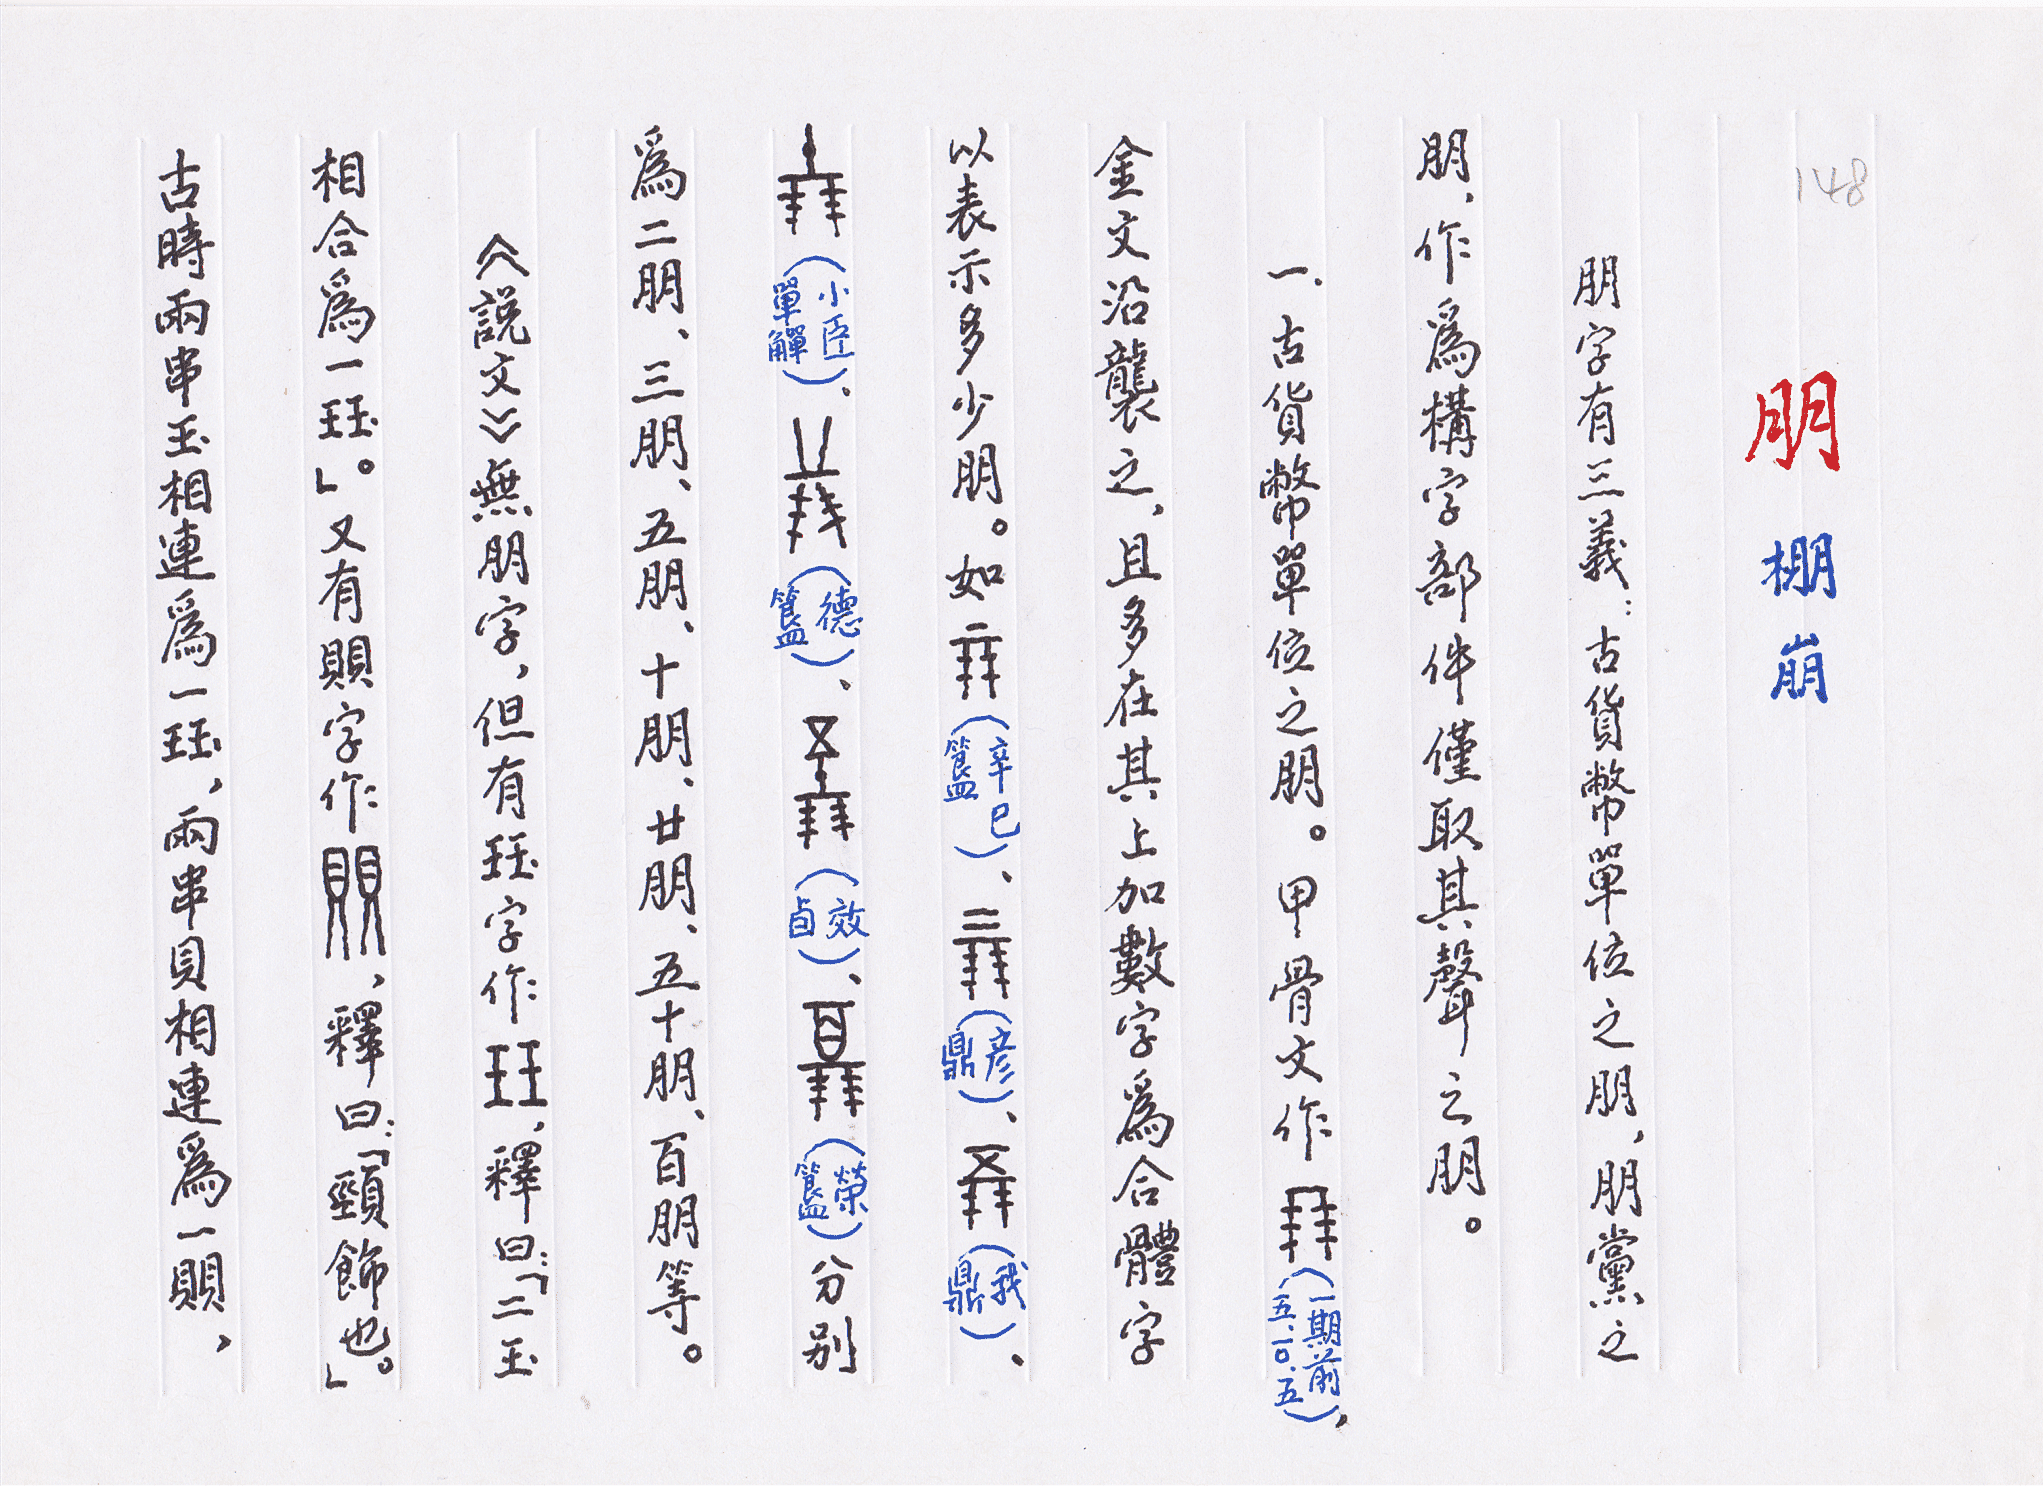 148
朋 棚 崩
朋字有三義：古貨幣單位之朋，朋黨之
朋，作爲構字部件僅取其聲之朋。
一．古貨幣單位之朋。甲骨文作（一期前五．一〇．五），
金文沿襲之，且多在其上加數字爲合體字
以表示多少朋。如（辛巳簋）、（彥鼎）、（我鼎）、
（小臣單觶）、（德簋）、（效卣）、（榮簋）分別
爲二朋、三朋、五朋、十朋、廿朋、五十朋、百朋等。
《説文》無朋字，但有珏字作玨，釋曰：「二玉
相合爲一珏。」又有賏字作賏，釋曰：「頸飾也。」
古時兩串玉相連爲一珏，兩串貝相連爲一賏，